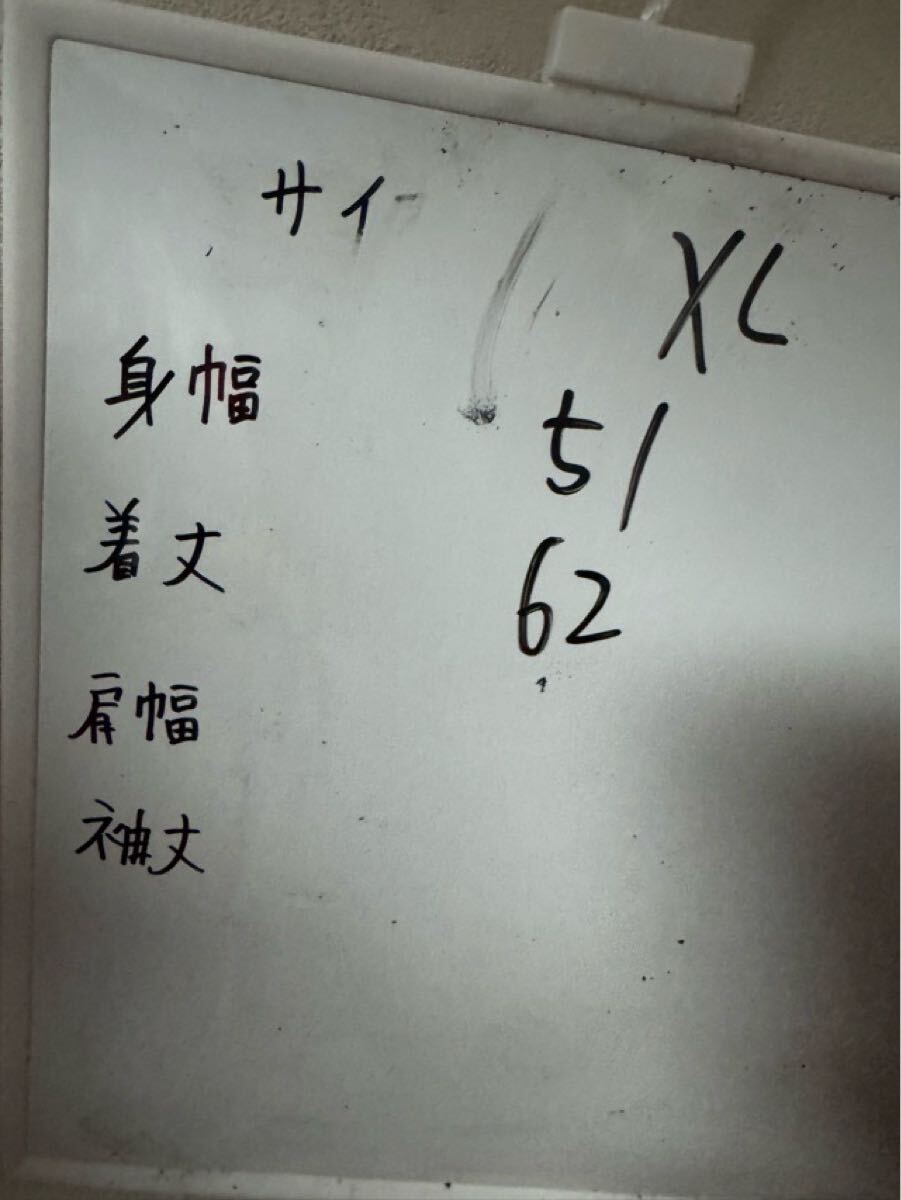 サイ XL
身幅 51
着丈 62
肩幅
袖丈